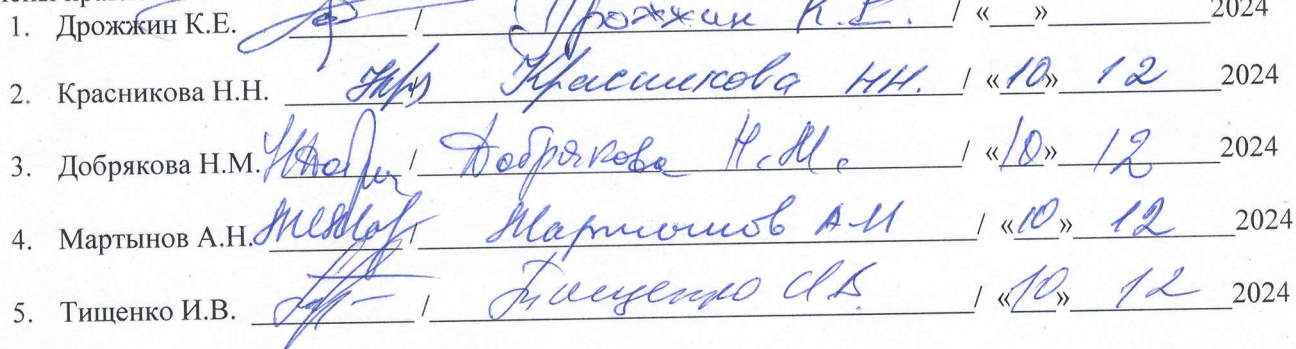 1. Дрожжин К.Е. / Дрожжин К.Е. / «___» 2024
2. Красникова Н.Н. / Красникова Н.Н. / «10» 12 2024
3. Добрякова Н.М. / Добрякова Н.М. / «10» 12 2024
4. Мартынов А.Н. / Мартынов А.Н / «10» 12 2024
5. Тищенко И.В. / Тищенко И.В. / «10» 12 2024